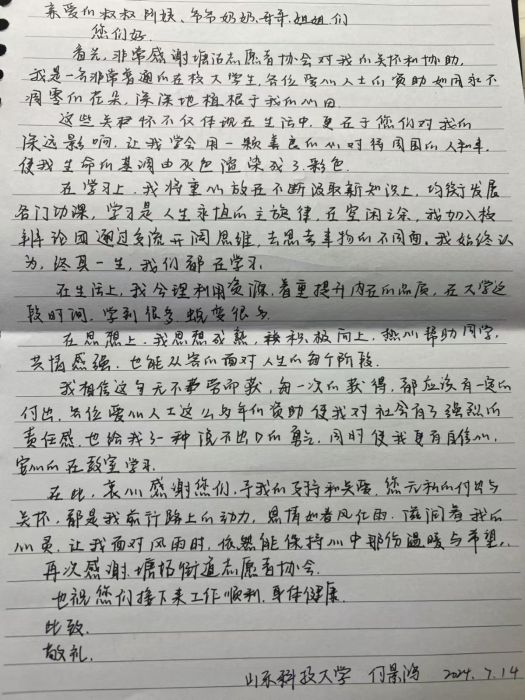 亲爱的叔叔阿姨、爷爷奶奶、哥哥、姐姐们
您们好。
首先,非常感谢塘沽志愿者协会对我的关怀和协助,
我是一名非常普通的在校大学生,各位爱心人士的资助如同永不
凋零的花朵,深深地植根于我的心田
这些关怀不仅体现在生活中,更在于您们对我的
深远影响,让我学会用一颗善良的心对待周围的人和事,
使我生命的基调由灰色渲染成了彩色.
在学习上,我将重心放在不断汲取新知识上,均衡发展
各门功课,学习是人生永恒的主旋律,在空闲之余,我加入校
辩论团通过交流开阔思维,去思考事物的不同面。我始终认
为,终其一生,我们都在学习.
在生活上,我合理利用资源,着重提升内在的品质,在大学这
段时间,学到很多,蜕变很多.
在思想上,我思想成熟,积极向上,热心帮助同学,
共情感强,也能从容的面对人生的每个阶段.
我相信这了无不劳而获,每一次的获得,都应该有一定的
付出,各位爱心人士这么多年的资助使我对社会有了强烈的
责任感,也给我了一种说不出口的勇气,同时使我更有自信心,
安心的在教室学习.
在此,衷心感谢您们,予我的支持和关爱,您无私的付出与
关怀,都是我前行路上的动力,恩情如春风化雨,滋润着我的
心灵,让我面对风雨时,依然能保持心中那份温暖与希望.
再次感谢,塘沽街道志愿者协会.
也祝您们接下来工作顺利.身体健康.
此致.
敬礼.
山东科技大学 2024.7.14